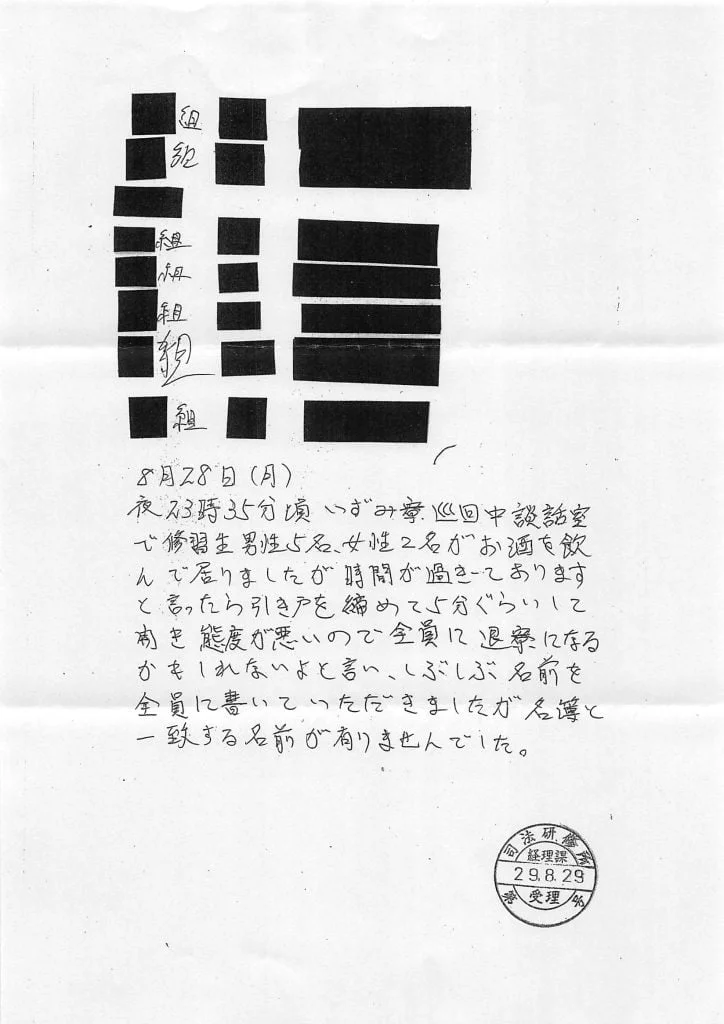 組
組
組
組
組
組
組
8月28日(月)
夜23時35分頃いずみ寮巡回中談話室
で修習生男性5名、女性2名がお酒を飲
んで居りましたが時間が過ぎております
と言ったら引き戸を締めて5分ぐらいして
開き態度が悪いので全員に退寮になる
かもしれないよと言い、しぶしぶ名前を
全員に書いていただきましたが名簿と
一致する名前が有りませんでした。
司法研修所
経理課
29.8.29
第 受理 号